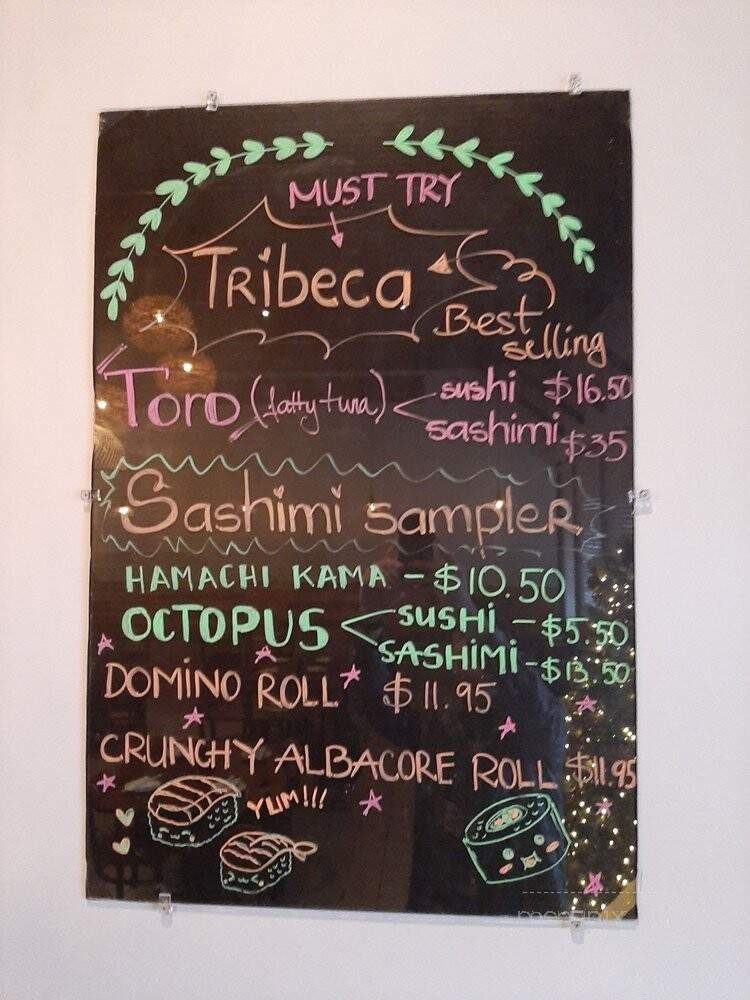 MUST TRY
Tribeca
Best
selling
Toro (fatty tuna) sushi $16.50
sashimi $35
Sashimi sampler
HAMACHI KAMA - $10.50
OCTOPUS SUSHI - $5.50
SASHIMI - $13.50
DOMINO ROLL $11.95
CRUNCHY ALBACORE ROLL $11.95
YUM!!!
menupix